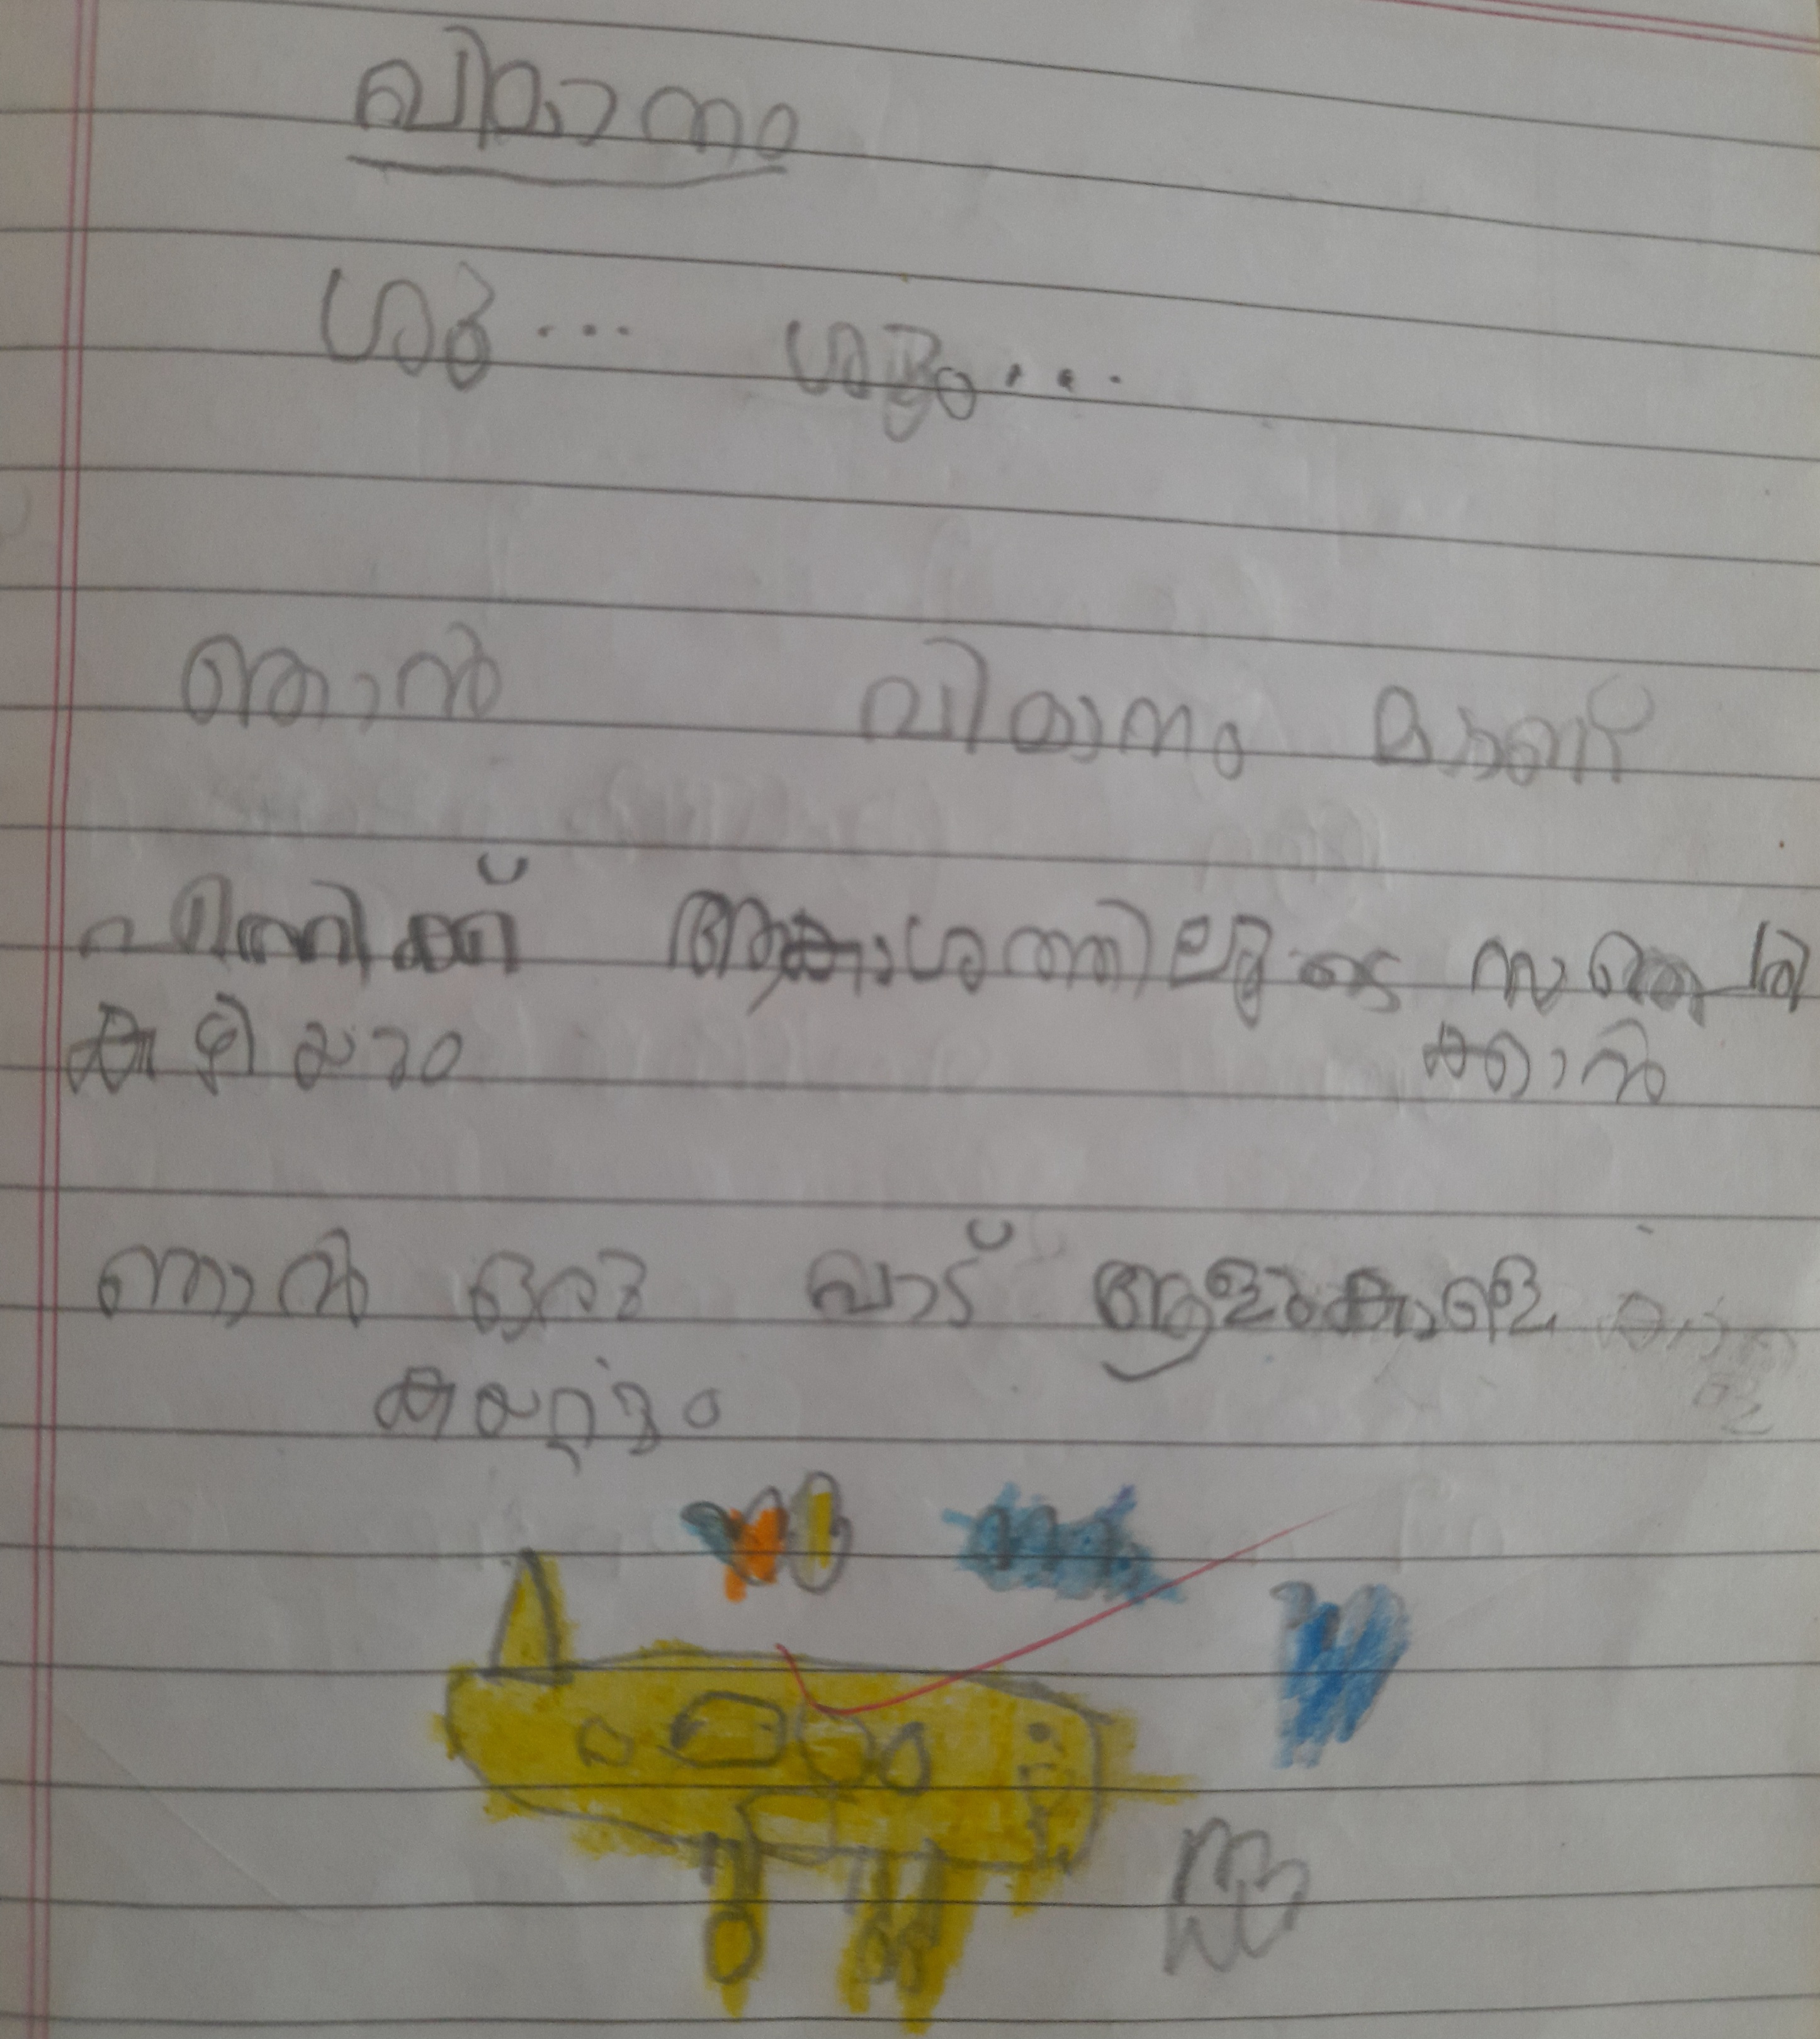 വിമാനം
ശർ... ശൂം...
ഞാൻ വിമാനം മാണ്
എനിക്ക് ആകാശത്തിലൂടെ സഞ്ചരി
കഴിയാം ക്കാൻ
ഞാൻ ഒരു പാട് ആളുകളെ
കയറ്റും